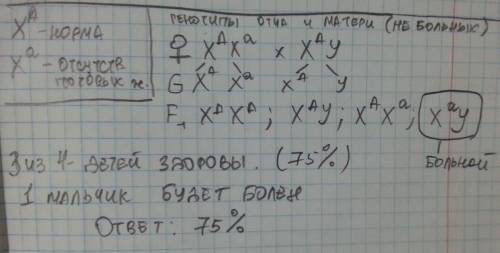 X^A - НОРМА
X^a - ОТСУТСТВ
ПОТОВЫХ Ж.
ГЕНОТИПЫ ОТЦА И МАТЕРИ (НЕ БОЛЬНЫХ)
♀ X^A X^a x X^A y
G X^A X^a X^A y
F1 X^A X^A ; X^A y ; X^A X^a ; X^a y
БОЛЬНОЙ
3 ИЗ 4 - ДЕТЕЙ ЗДОРОВЫ. (75%)
1 МАЛЬЧИК БУДЕТ БОЛЕН
ОТВЕТ: 75%